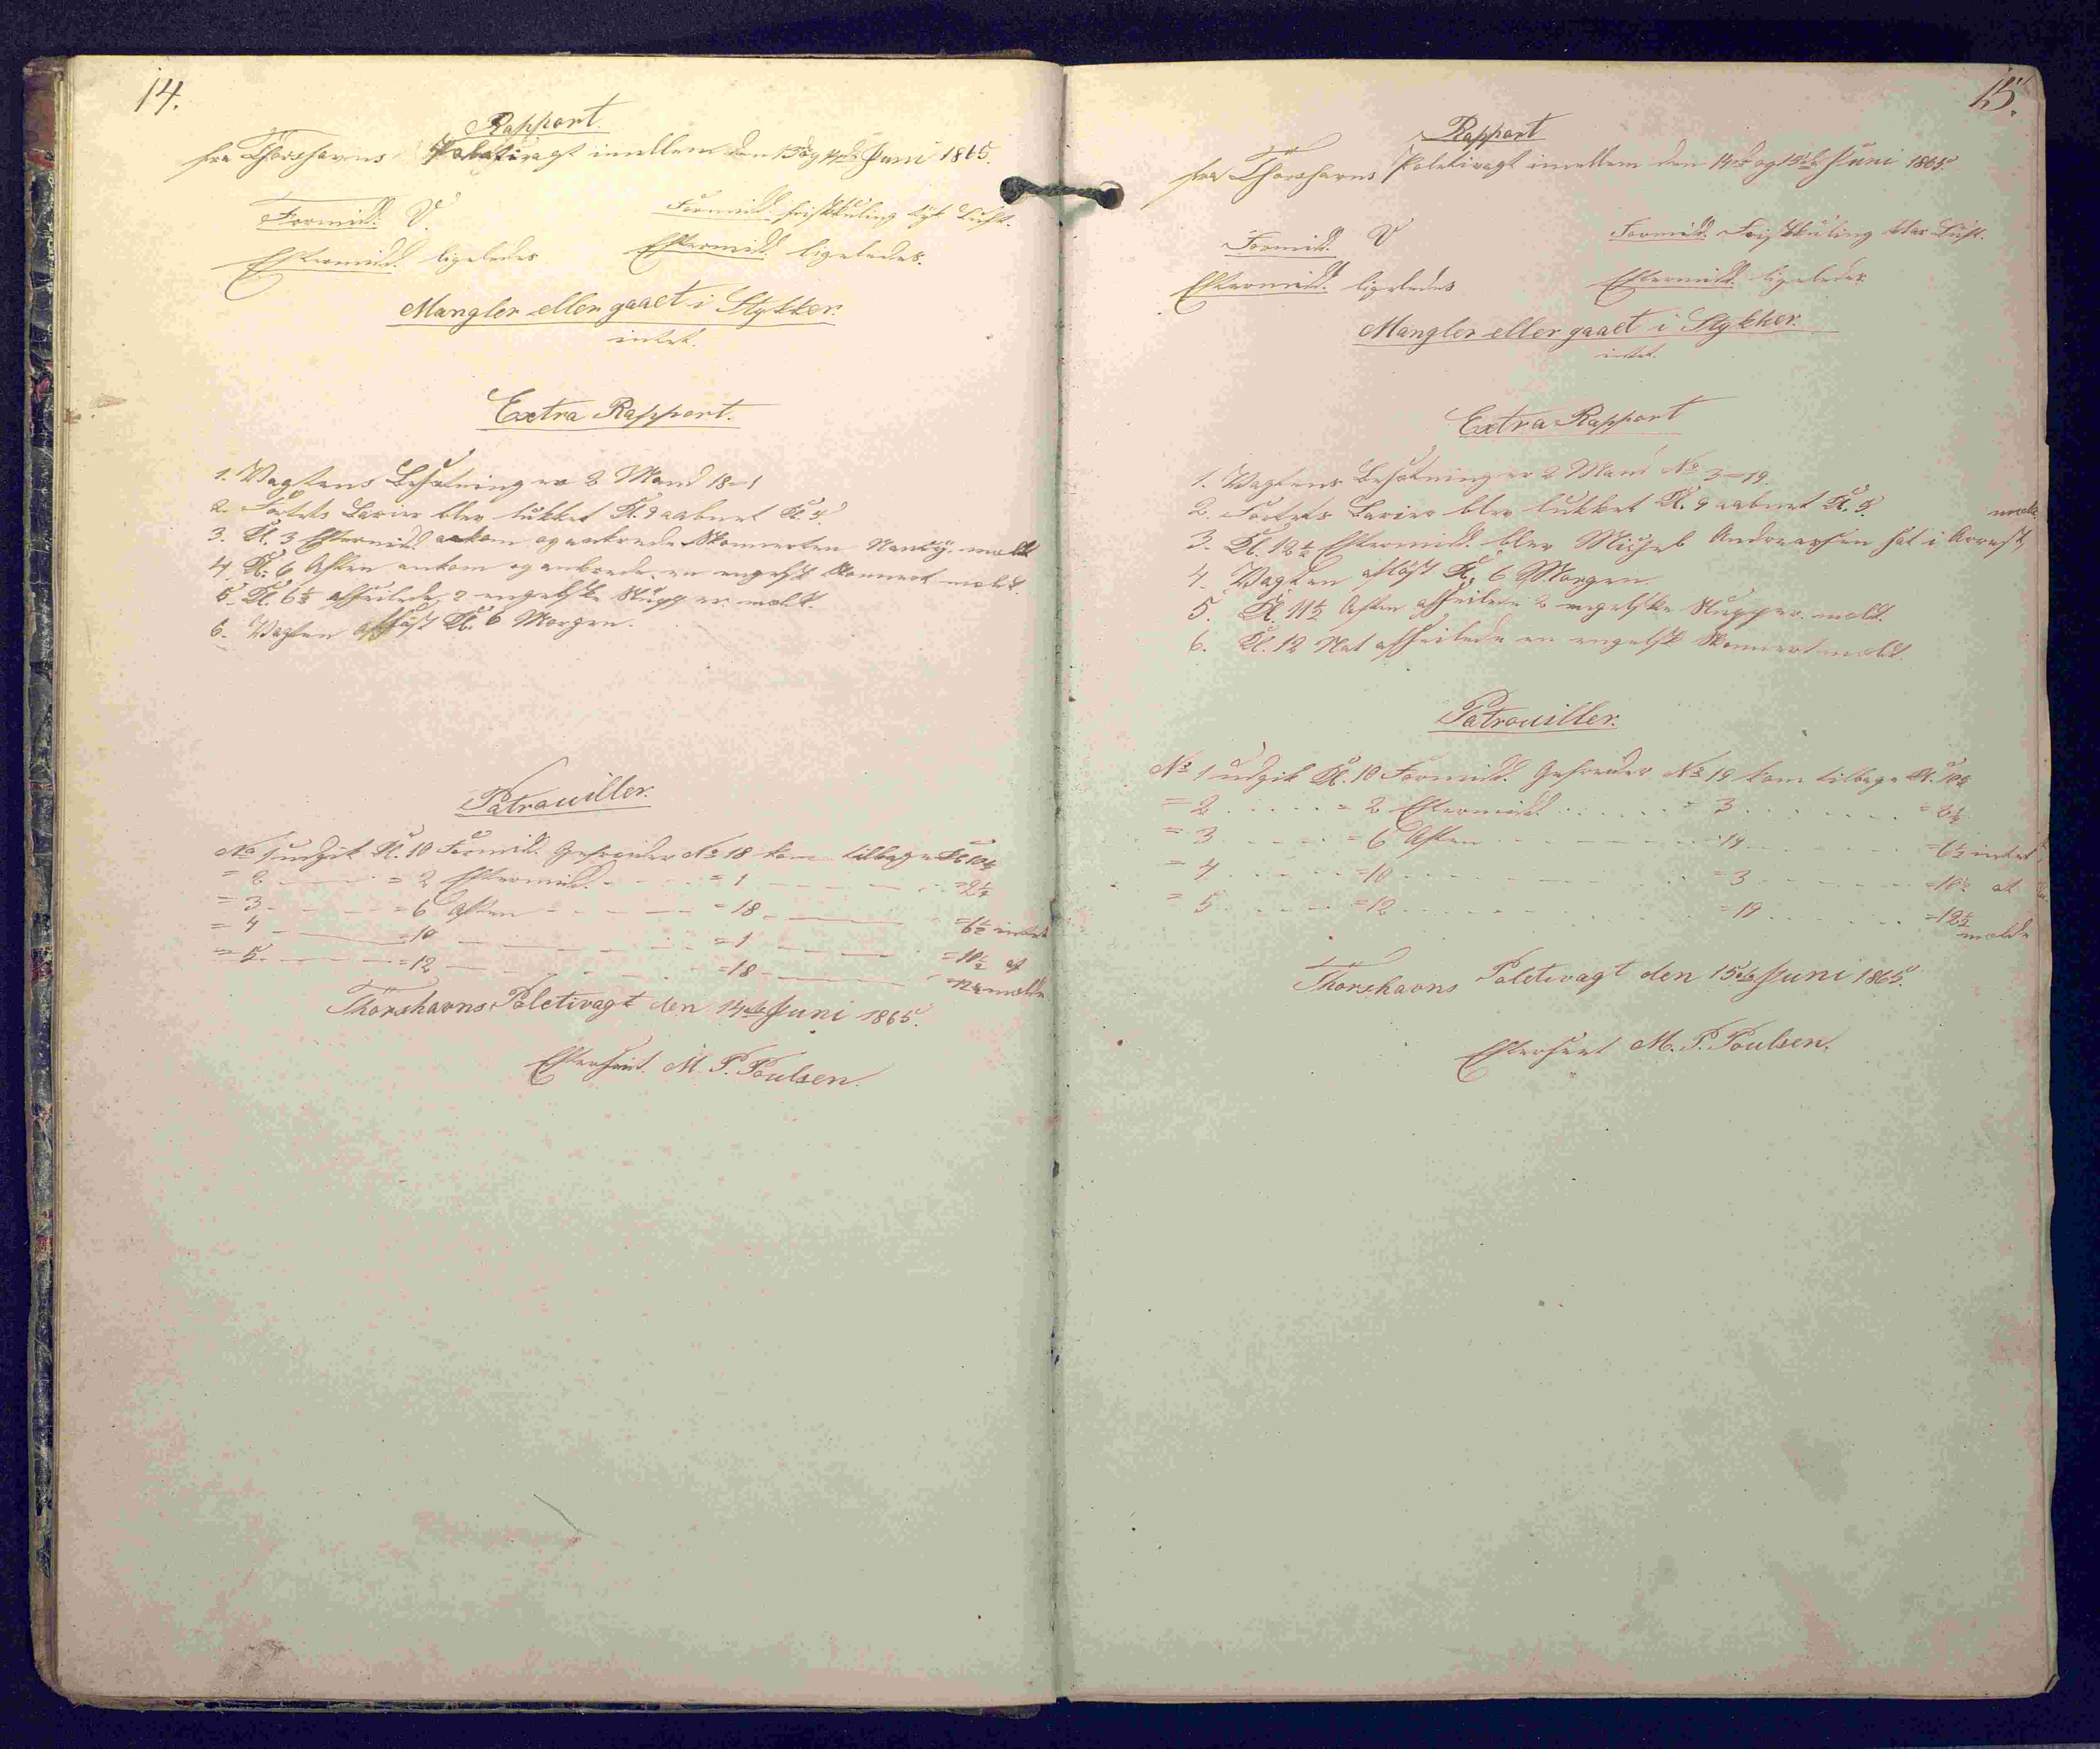 14.
Rapport.
fra Thorshavns Politivagt imellem den 13de og 14de Juni 1865.
Formidd: V. Formidd. friskkuling tyk Luft.
Eftermidd. ligeledes Eftermidd. ligeledes.
Mangler eller gaaet i Stykker.
intet.
Extra Rapport.
1. Vagtens Besætning er 2 Mand 18=1
2. Fortets Barier blev lukket Kl. 9 aabnet Kl.
3. Kl. 3 Eftermidd ankom og ankrede Skonnerten Nancÿ. meldt
4. Kl. 6 Aften ankom og ankrede en engelsk Skonnert meldt.
5. Kl. 6½ afseilede 2 engelske Slupper meldt.
6. Vagten afløst Kl. 6 Morgen.
Patrouiller.
No 1 udgik Kl. 10 Formidd. Gefreider No 18 kom tilbage Kl 10½
= 2 = 2 Eftermidd. = 1 =2½
= 3 = 6 Aften = 18 =6½ intet
= 4 =10 =1 =10½ at
= 5. =12 =18 =12½ melde
Thorshavns Poletivagt den 14de Juni 1865.
Efterseet. M. P. Poulsen.
15.
Rapport
fra Thorshavns Poletivagt imellem den 14de og 15de Juni 1865.
Formidd. V Formidd. Friskkuling klar Luft.
Eftermidd. ligeledes Eftermidd. ligeledes.
Mangler eller gaaet i Stykker.
intet.
Extra Rapport
1. Vagtens Besætning er 2 Mand No 3=19.
2. Fortets Barier blev lukket Kl. 9 aabnet Kl.
meldt.
3. Kl. 12½ Eftermidd. blev Michjel Andreassen sat i Arrest,
4. Vagten afløst Kl. 6 Morgen.
5. Kl. 11½ Aften afseilede 2 engelske Slupper. meldt.
6. Kl. 12 Nat afseilede en engelsk Skonnert meldt.
Patrouiller.
No 1 udgik Kl. 10 Formidd. Gefreider No 19 kom tilbage Kl. 10½
= 2 = 2 Eftermidd. = 3 = 2½
= 3 = 6 Aften =19 =6½ intet
= 4 =10 =3 =10½ at
= 5 =12 =19 =12½
melde
Thorshavns Poletivagt den 15de Juni 1865.
Efterseet M. P. Poulsen.